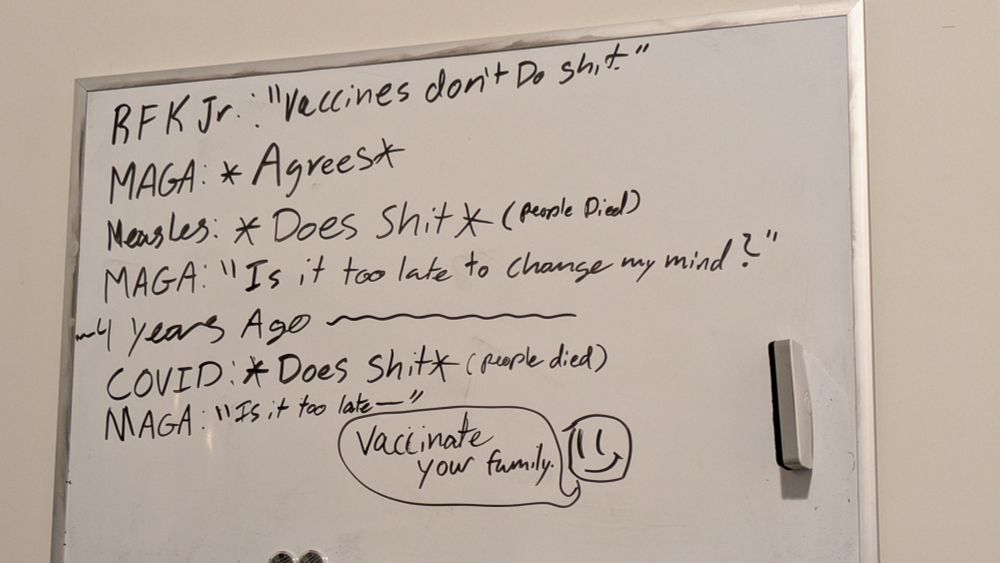 RFK Jr.: "Vaccines don't Do shit"
MAGA: *Agrees*
Measles: *Does Shit* (people Died)
MAGA: "Is it too late to change my mind?"
~4 years Ago
COVID: *Does Shit* (people died)
MAGA: "Is it too late—"
Vaccinate
your family.